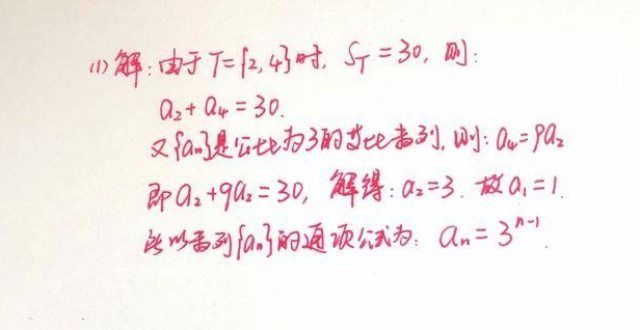 (1) 解：由于 T={2,4}时, S_T=30, 则：
a₂+a₄=30.
又{aₙ}是公比为3的等比数列, 则：a₄=9a₂
即 a₂+9a₂=30, 解得：a₂=3. 故 a₁=1.
所以数列{aₙ}的通项公式为：aₙ=3ⁿ⁻¹.